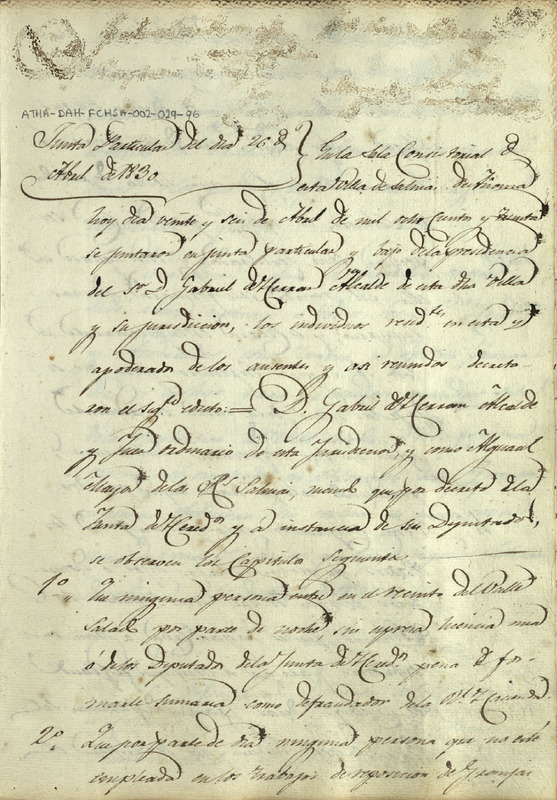 ATHA-DAH-FCHSA-002-029-96
Junta Particular del dia 26 d
Abril de 1830
En la Sala Consistorial d
esta Villa de Salinas de Añana
hoy dia veinte y seis de Abril de mil ocho cientos y treinta
se juntaron en junta particular y bajo de la presidencia
del Sr. D. Gabriel de Herran Alcalde de esta dha Villa
y su jurisdiccion, los individuos resid.tes en esta y
apoderados de los ausentes y asi reunidos decreta-
ron el sig.te edicto:= D. Gabriel de Herran Alcalde
y Juez ordinario de esta Jurisdiccion, y como Alguacil
Mayor de las R.s Salinas, mando que por decreto de la
Junta de Hered.s y a instancia de sus Diputados,
se observen los Capitulos siguientes
1º Que ninguna persona entre en el recinto del Valle
Salado por parte de noche, sin expresa licencia mia
ó de los Diputados de la Junta de Hered.s pena d for-
marle sumaria como defraudador de la R.l Hacienda.
2º Que por parte de dia ninguna persona que no esté
empleada en los trabajos de reposicion de Granjas